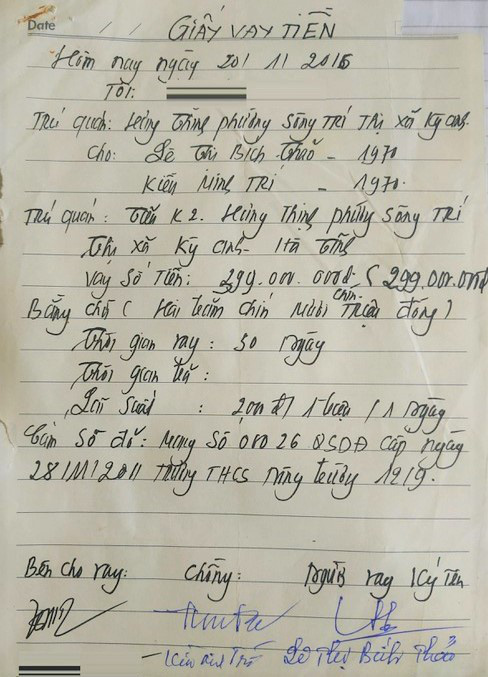 Date
GIẤY VAY TIỀN
Hôm nay ngày 20/11/2016
Tôi:
Trú quán: Hưng Thịnh phường Sông Trí Thị xã Kỳ Anh
Cho: Lê Thị Bích Thảo - 1970
Kiều Minh Trí - 1970.
Trú quán: Tiểu K2. Hưng Thịnh phường Sông Trí
Thị xã Kỳ Anh - Hà Tĩnh
Vay số tiền: 299.000.000đ (299.000.000đ
Bằng chữ (Hai trăm chín mươi chín Triệu đồng)
Thời gian vay: 30 ngày
Thời gian trả:
Lãi suất: 200đ/1 triệu/1 ngày
Cầm sổ đỏ: Mang số 00026 QSDĐ cấp ngày
28/11/2011 Trường THCS
Bên cho vay: Chồng: Người vay Ký tên
Lê Thị Bích Thảo